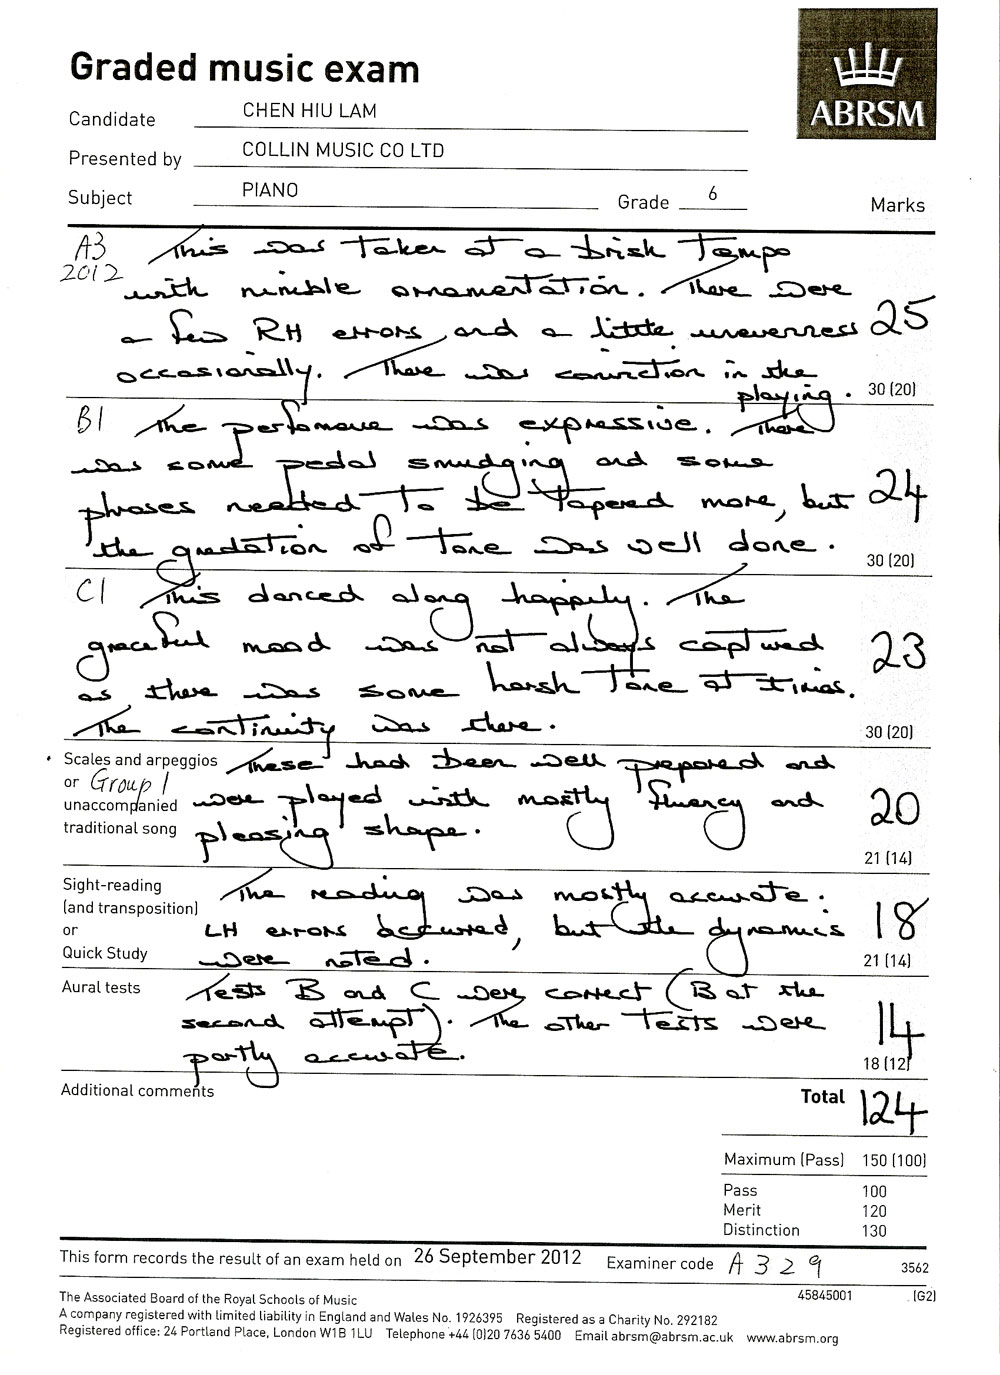 Graded music exam
ABRSM
Candidate CHEN HIU LAM
Presented by COLLIN MUSIC CO LTD
Subject PIANO Grade 6 Marks
A3 This was taken at a brisk tempo
2012 with nimble ornamentation. There were
a few RH errors, and a little unevenness 25
occasionally. There was conviction in the
playing. 30 (20)
B1 The performance was expressive. There
was some pedal smudging and some
phrases needed to be tapered more, but 24
the gradation of tone was well done.
30 (20)
C1 This danced along happily. The
graceful mood was not always captured 23
as there was some harsh tone at times.
The continuity was there.
30 (20)
Scales and arpeggios These had been well prepared and
or Group 1
unaccompanied were played with mostly fluency and 20
traditional song pleasing shape.
21 (14)
Sight-reading The reading was mostly accurate.
(and transposition)
or LH errors occured, but the dynamics 18
Quick Study were noted. 21 (14)
Aural tests Tests B and C were correct (B at the
second attempt). The other tests were 14
partly accurate. 18 (12)
Additional comments Total 124
Maximum (Pass) 150 (100)
Pass 100
Merit 120
Distinction 130
This form records the result of an exam held on 26 September 2012 Examiner code A329 3562
45845001 (G2)
The Associated Board of the Royal Schools of Music
A company registered with limited liability in England and Wales No. 1926395 Registered as a Charity No. 292182
Registered office: 24 Portland Place, London W1B 1LU Telephone +44 (0)20 7636 5400 Email abrsm@abrsm.ac.uk www.abrsm.org